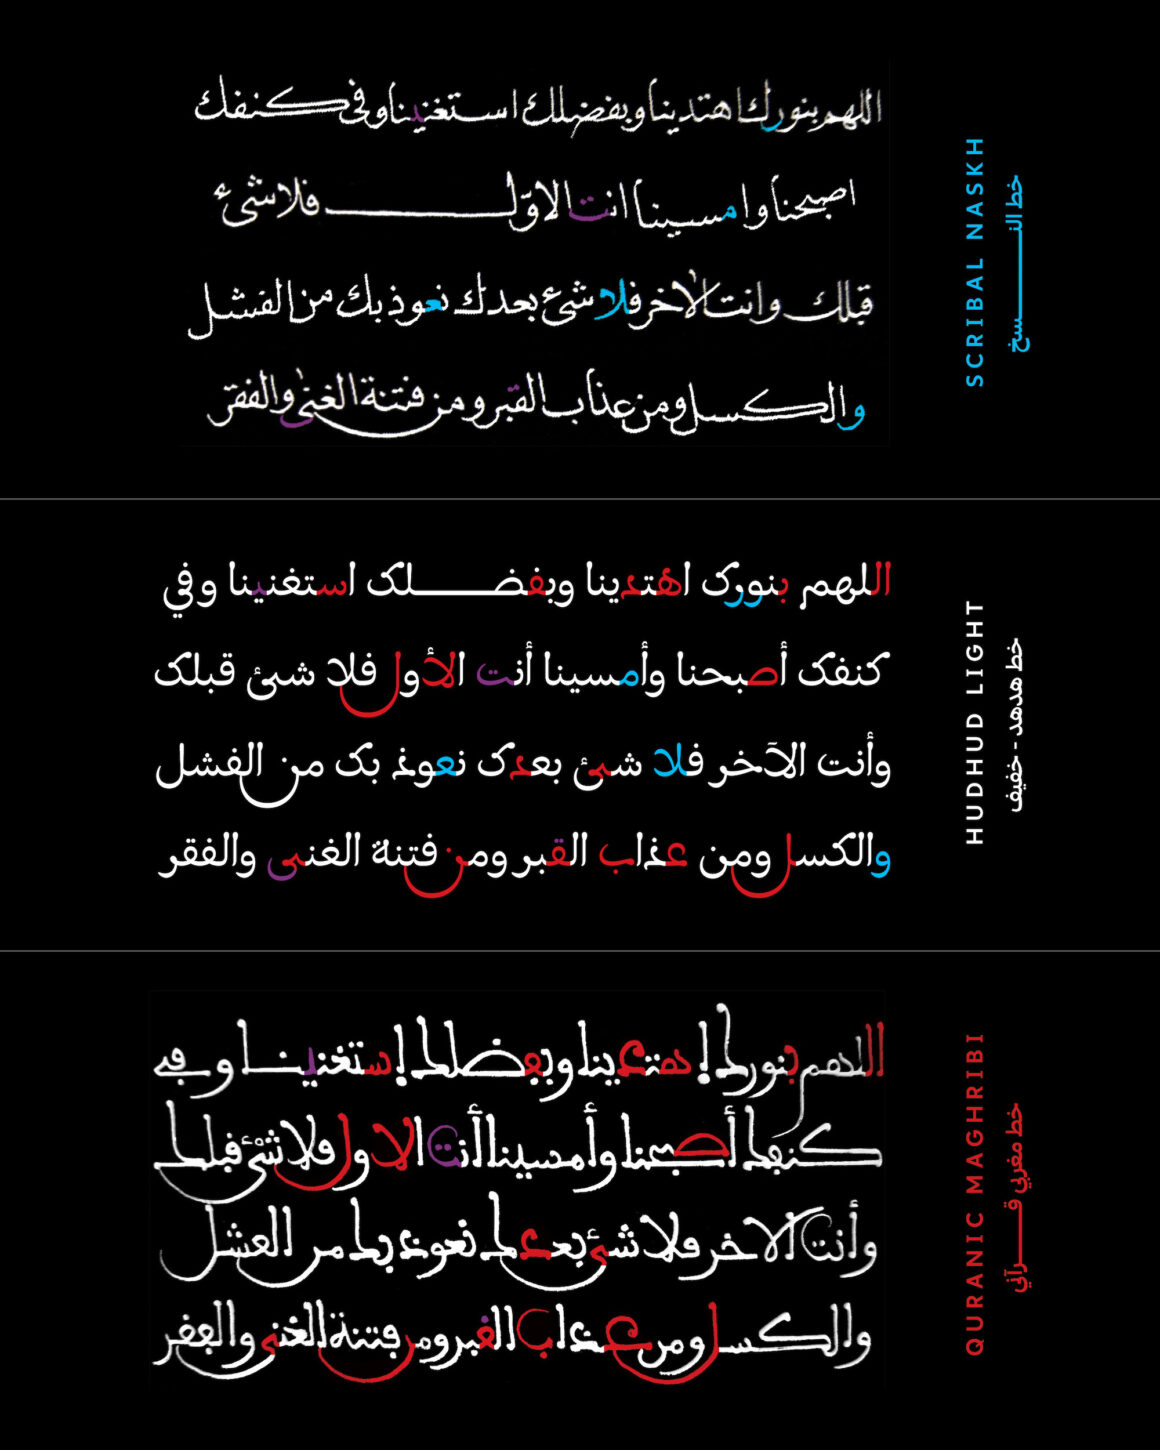 اللهم بنورك اهتدينا وبفضلك استغنينا وفى كنفك
اصبحنا وامسينا انت الاوّل فلا شىء
قبلك وانت الاخر فلا شىء بعدك نعوذ بك من الفشل
والكسل ومن عذاب القبر ومن فتنة الغنى والفقر
SCRIBAL NASKH
خط النـــــــسخ
اللهم بنورک اهتدينا وبفضـــــلک استغنينا وفي
کنفک أصبحنا وأمسينا أنت الأول فلا شئ قبلک
وأنت الآخر فلا شئ بعدک نعوذ بک من الفشل
والکسل ومن عذاب القبر ومن فتنة الغنى والفقر
HUDHUD LIGHT
خط هدهد - خفيف
اللهم بنورك اهتدينا وبفضلك استغنينا وفي
كنفك أصبحنا وأمسينا أنت الاول فلا شئ قبلك
وأنت الاخر فلا شئ بعدك نعوذ بك من الفشل
والكسل ومن عذاب القبر ومن فتنة الغنى والفقر
QURANIC MAGHRIBI
خط مغربي قـــرآني